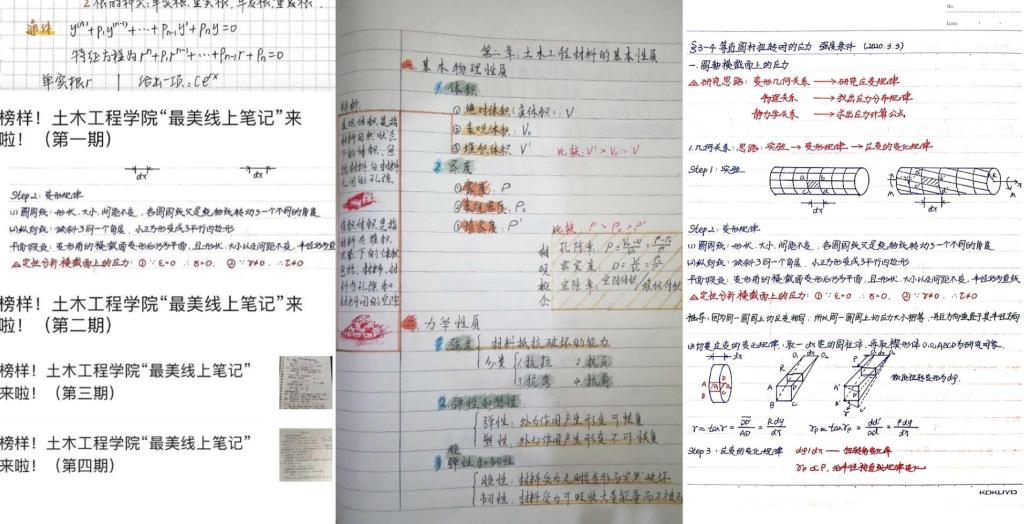 2.根的种类:单实根,重实根,单复根,重复根.
通解 y⁽ⁿ⁾+p₁y⁽ⁿ⁻¹⁾+…+pₙ₋₁y'+pₙy=0
特征方程为rⁿ+p₁rⁿ⁻¹+…+pₙ₋₁r+pₙ=0
单实根r | 给出一项:Ceʳˣ
榜样!土木工程学院“最美线上笔记”来
啦!(第一期)
dx dx
Step2: 变形规律
(1)圆周线:形状、大小、间距不变,各圆周线只是绕轴线转动了一个不同的角度
(2)纵向线:倾斜了同一个角度,小正方形变成了平行四边形
平面假设:变形前的横截面变形后仍为平面,且形状、大小以及间距不变,半径仍为直
△定性分析横截面上的应力:①∵ε=0 ∴σ=0. ②∵γ≠0 ∴τ≠0
榜样!土木工程学院“最美线上笔记”来
啦!(第二期)
榜样!土木工程学院“最美线上笔记”
来啦!(第三期)
榜样!土木工程学院“最美线上笔记”
来啦!(第四期)
第二章:土木工程材料的基本性质
一.基本物理性质
1.体积
①绝对体积(实体积):V
②表观体积 V₀
③堆积体积 V' 比较:V'>V₀>V
2.密度
①密度:ρ
②表观密度:ρ₀
③堆密度:ρ' 比较:ρ>ρ₀>ρ'
辨析
表观体积是指
材料自然状态
下的体积,包
堆积体积是指
材料在堆积
状态下的体积
相关概念
孔隙率
密实度
空隙率
二.力学性质
1.强度{材料抵抗破坏的能力
分类{1.抗拉 2.抗压
3.抗弯 4.抗剪
2.弹性和塑性
弹性:外力作用产生形变可恢复
塑性:外力作用产生形变不可恢复
脆
3.弹性和韧性
脆性:材料受力无明显变形而突然破坏
韧性:材料受力可吸收大量能量而不被
No.
Date
§3-4 等直圆杆扭转时的应力 强度条件 (2020.3.3)
一.圆轴横截面上的应力
△研究思路:变形几何关系 → 研究应变规律
物理关系 → 找出应力分布规律
静力学关系 → 求出应力计算公式
1.几何关系:思路:实验 → 变形规律 → 应变的变化规律
Step1:实验
dx dx
Step2: 变形规律
(1)圆周线:形状、大小、间距不变,各圆周线只是绕轴线转动了一个不同的角度
(2)纵向线:倾斜了同一个角度,小正方形变成了平行四边形
平面假设:变形前的横截面变形后仍为平面,且形状、大小以及间距不变,半径仍为直线
△定性分析横截面上的应力:①∵ε=0 ∴σ=0. ②∵γ≠0 ∴τ≠0
推导:因为同一圆周上切应变相同,所以同一圆周上切应力大小相等,并且方向垂直于其半径方向
(2)切应变的变化规律:取一dx 段的圆柱体
Step3:应变的变化规律
KOKUYO